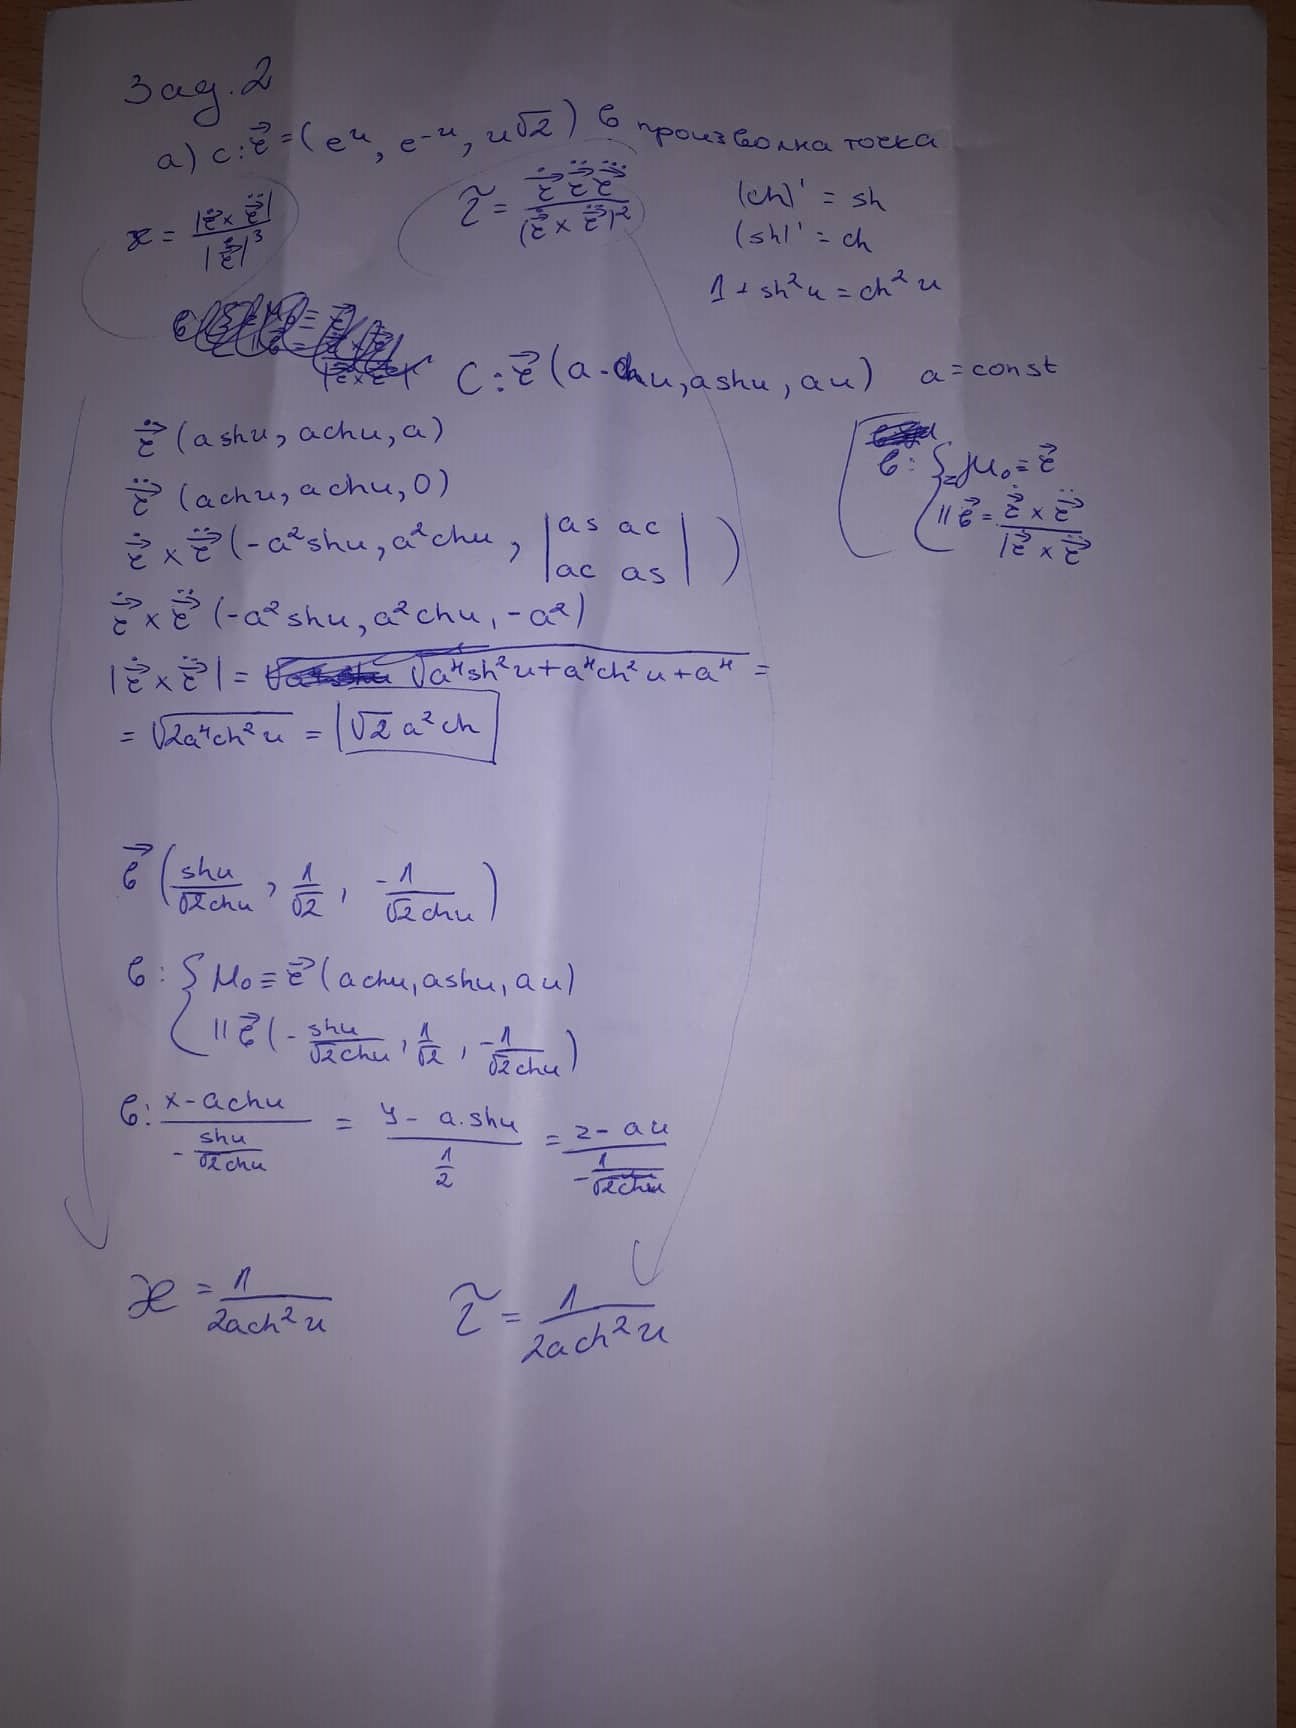 Зад. 2
а) c: r⃗ = (eᵘ, e⁻ᵘ, u√2) в произволна точка
æ = |ṙ⃗ × r̈⃗| / |ṙ⃗|³
τ = ṙ⃗ r̈⃗ r⃛⃗ / (ṙ⃗ × r̈⃗)²
(ch)' = sh
(sh)' = ch
1 + sh²u = ch²u
C: r⃗ (a.chu, ashu, au) a = const
ṙ⃗ (ashu, achu, a)
r̈⃗ (achu, achu, 0)
ṙ⃗ × r̈⃗ (-a²shu, a²chu, |as ac
ac as|)
ṙ⃗ × r̈⃗ (-a²shu, a²chu, -a²)
|ṙ⃗ × r̈⃗| = √(a⁴sh²u + a⁴ch²u + a⁴) =
= √(2a⁴ch²u) = √2 a²ch
в: { M₀ = r⃗
|| в⃗ = ṙ⃗ × r̈⃗ / |ṙ⃗ × r̈⃗
в⃗ (shu/√2chu, 1/√2, -1/√2chu)
в: { M₀ ≡ r⃗ (achu, ashu, au)
|| в⃗ (- shu/√2chu, 1/√2, -1/√2chu)
в: (x - achu)/(- shu/√2chu) = (y - a.shu)/(1/2) = (z - au)/(- 1/√2chu)
æ = 1/2ach²u
τ = 1/2ach²u